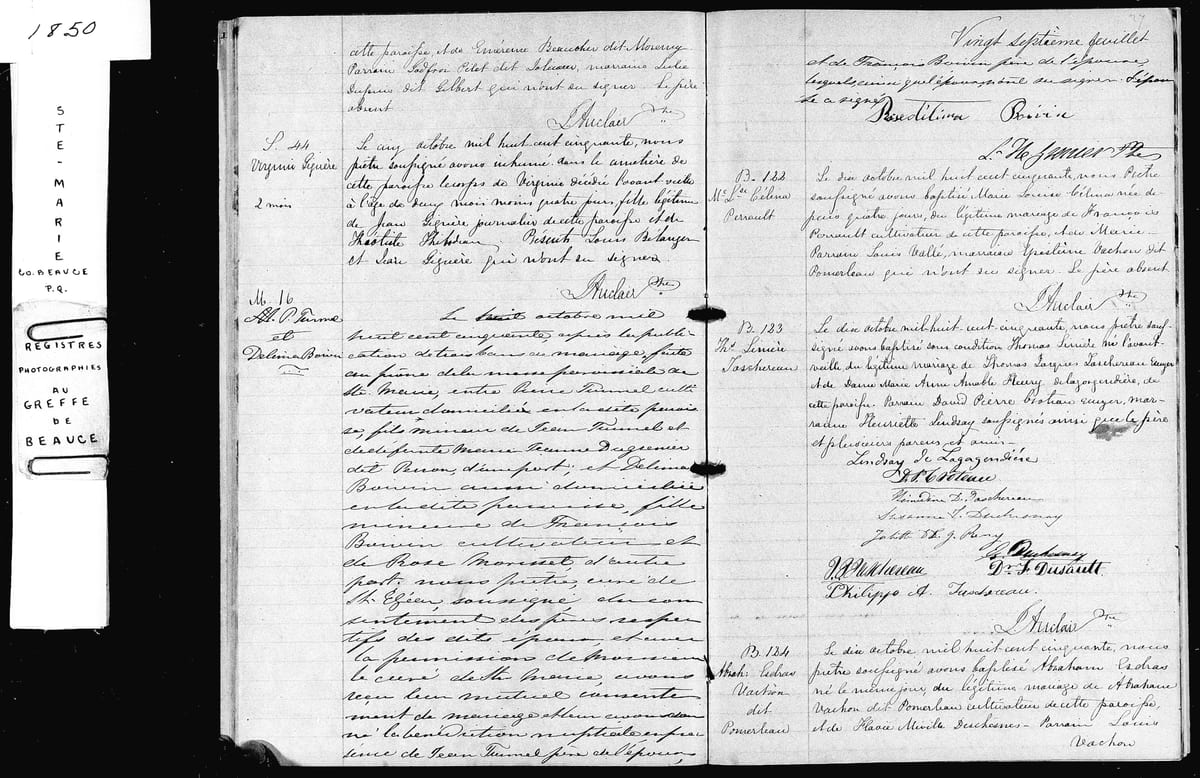 1850
STE-MARIE
CO. BEAUCE
P.Q.
REGISTRES
PHOTOGRAPHIES
AU
GREFFE
DE
BEAUCE
cette paroisse, et de Emérence Beaucher dit Morency
Parrain Godfroi Petot dit marraine Julie
Dupuis dit Gilbert qui n'ont su signer. Le père
absent
J Auclair Ptre
S. 44
Virginie Giguère
2 mois
Le cinq octobre mil huit cent cinquante, nous
prêtre soussigné avons inhumé dans le cimetière de
cette paroisse le corps de Virginie décédée l'avant veille
à l'âge de deux mois moins quatre jours, fille légitime
de Jean Giguère journalier de cette paroisse et de
Théotiste Thibodeau Présents Louis Bélanger
et Isaïe Giguère qui n'ont su signer
J Auclair Ptre
M. 16
P. Turmel
et
Delima Boivin
Le huit octobre mil
huit cent cinquante après la publi-
cation de trois bans de mariage, faite
au prône de la messe paroissiale de
Ste Marie, entre Pierre Turmel culti
vateur domicilié en la dite parois
se, fils mineur de Jean Turmel et
de défunte Marie Jeanne Dugrenier
dit Perron, d'une part, et Delima
Boivin aussi domiciliée
en la dite paroisse, fille
mineure de François
Boivin cultivateur et
de Rose Morisset, d'autre
part, nous prêtre, curé de
St. Elzéar, soussigné du con
sentement des pères respec
tifs des dits époux, et avec
la permission de Monsieur
le curé de Ste Marie, avons
reçu leur mutuel consente
ment de mariage et leur avons don
né la bénédiction nuptiale en pré
sence de Jean Turmel père de l'époux,
27
Vingt septième feuillet
et de François Boivin père de l'épouse,
lesquels, ainsi que l'époux, n'ont su signer. L'épou
se a signé
Rosedélima Boivin
L. H. Grenier Ptre
B. 122
Me. Lse. Célina
Perrault
Le dix octobre mil huit cent cinquante, nous Prêtre
soussigné avons baptisé Marie Louise Célina née de-
puis quatre jours, du légitime mariage de François
Perrault cultivateur de cette paroisse, et de Marie-
Parrain Louis Vallé, marraine Vachon dit
Pomerleau qui n'ont su signer. Le père absent
J Auclair Ptre
B. 123
Ths. Linière
Taschereau
Le dix octobre mil huit cent cinquante, nous prêtre sous-
signé avons baptisé sous condition Thomas Linière né l'avant-
veille du légitime mariage de Thomas Jacques Taschereau Ecuyer
et de Dame Marie Anne Amable Fleury de la gorgendière, de
cette paroisse. Parrain David Pierre écuyer, mar-
raine Henriette Lindsay soussignés ainsi que le père
et plusieurs parens et amis-
Lindsay de Lagorgendière
D. P.
D. Taschereau
Duchesnay
J. Perry
Duchesnay
Taschereau
Dr. F. Dusault
Philippe A. Taschereau
J Auclair Ptre
B. 124
Abrah: Esdras
Vachon
dit
Pomerleau
Le dix octobre mil huit cent cinquante, nous
prêtre soussigné avons baptisé Abraham Esdras
né le même jour, du légitime mariage de Abraham
Vachon dit Pomerleau cultivateur de cette paroisse,
et de Flavie Miville Duchesnes- Parrain Louis
Vachon